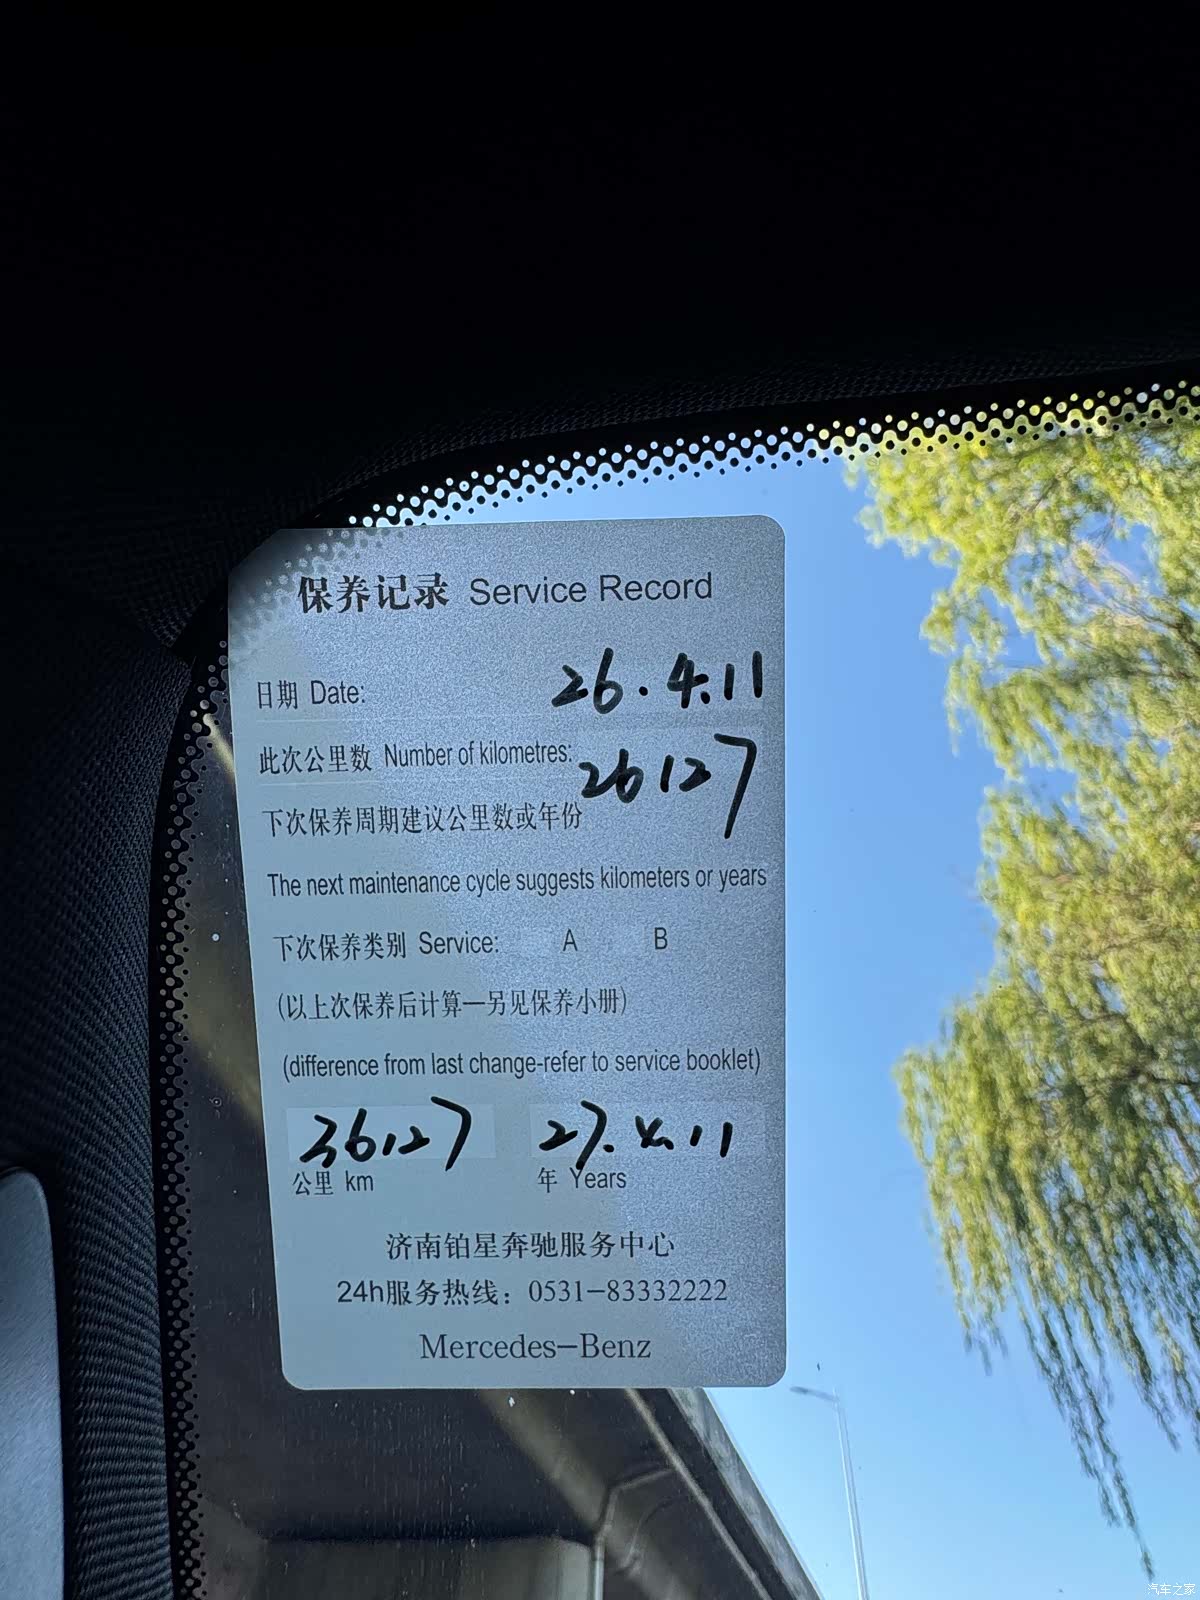 保养记录 Service Record
日期 Date: 26.4.11
此次公里数 Number of kilometres: 26127
下次保养周期建议公里数或年份
The next maintenance cycle suggests kilometers or years
下次保养类别 Service: A B
(以上次保养后计算—另见保养小册)
(difference from last change-refer to service booklet)
36127 27.4.11
公里 km 年 Years
济南铂星奔驰服务中心
24h服务热线：0531-83332222
Mercedes-Benz
汽车之家